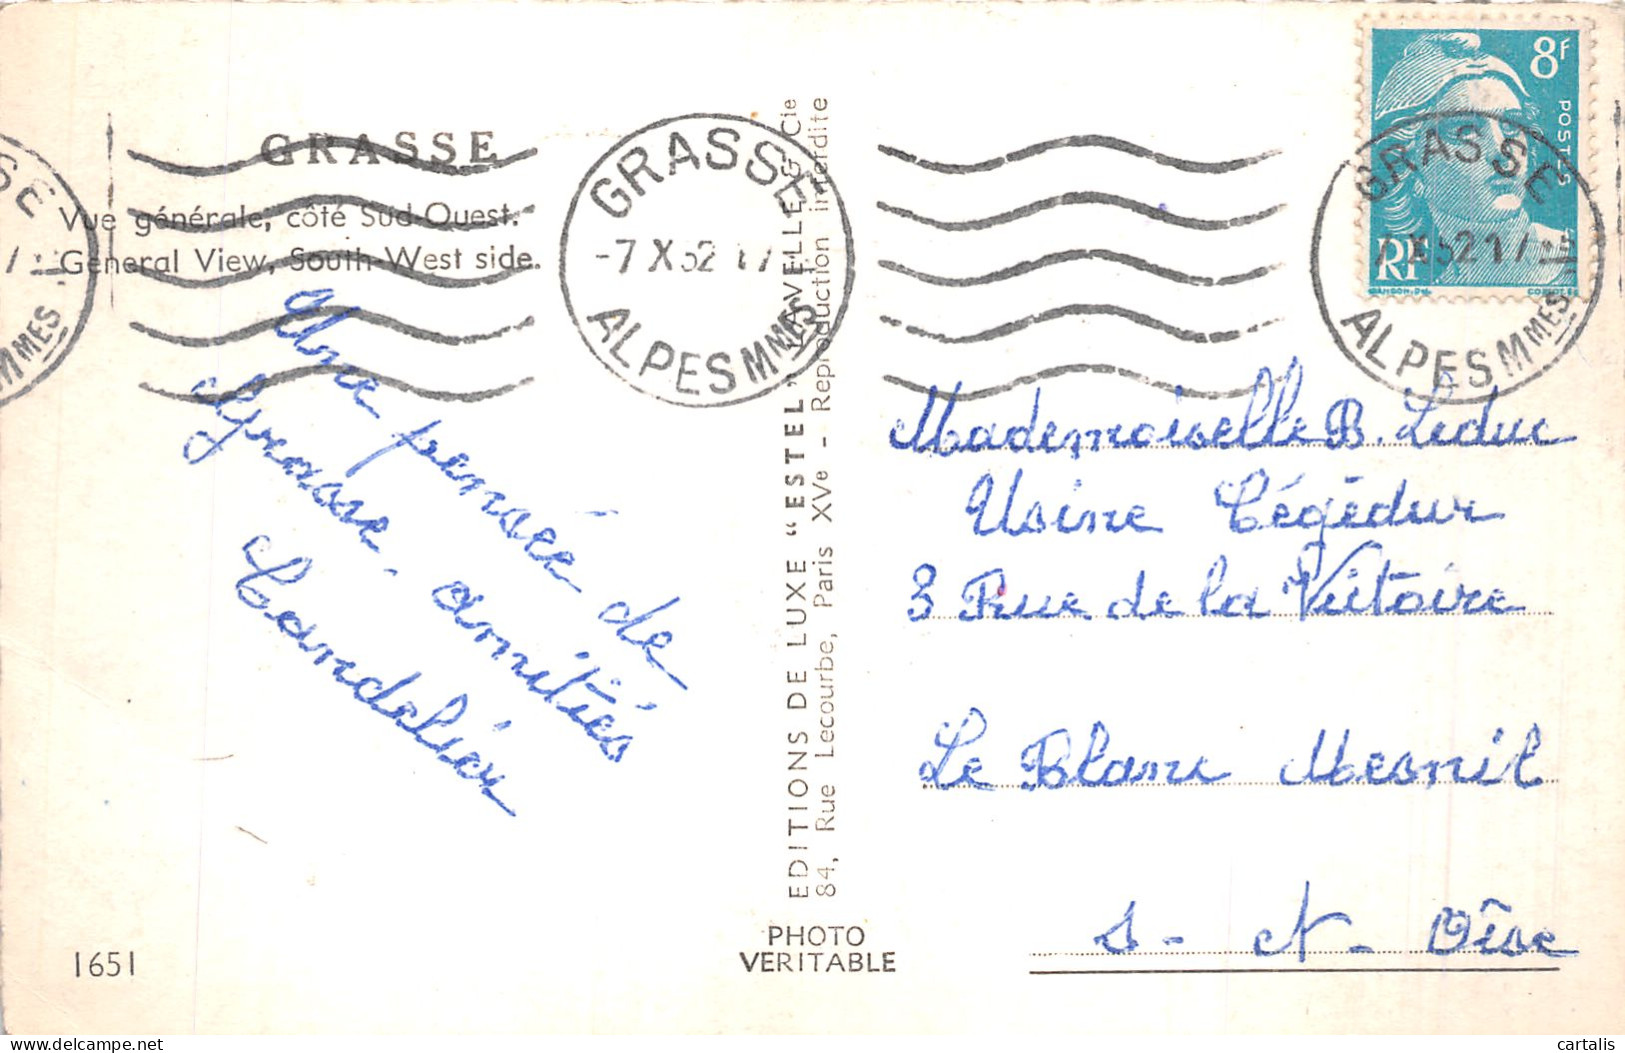 GRASSE
Vue générale, côté Sud-Ouest.
General View, South-West side.
Une pensée de
Grasse. amitiés
1651
GRASSE
-7 X 52 17
ALPES MMES
EDITIONS DE LUXE "ESTEL" LAVELLE & Cie
84, Rue Lecourbe, Paris XVe - Reproduction interdite
PHOTO
VERITABLE
8F
POSTES
RF
GRASSE
7 X 52 17
ALPES MMES
Mademoiselle B. Leduc
Usine Cégédur
3 Rue de la Victoire
Le Blanc Mesnil
S - et - Oise
delcampe.net
cartalis